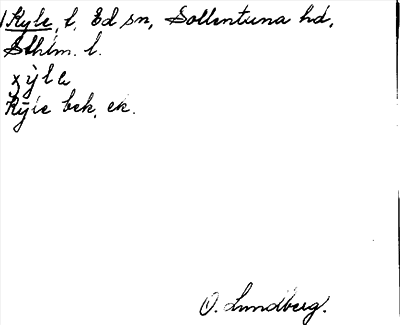 Kyle, t. Ed sn, Sollentuna hd,
Sthlm. l.
xýle
bek. ek.
O. Lundberg.